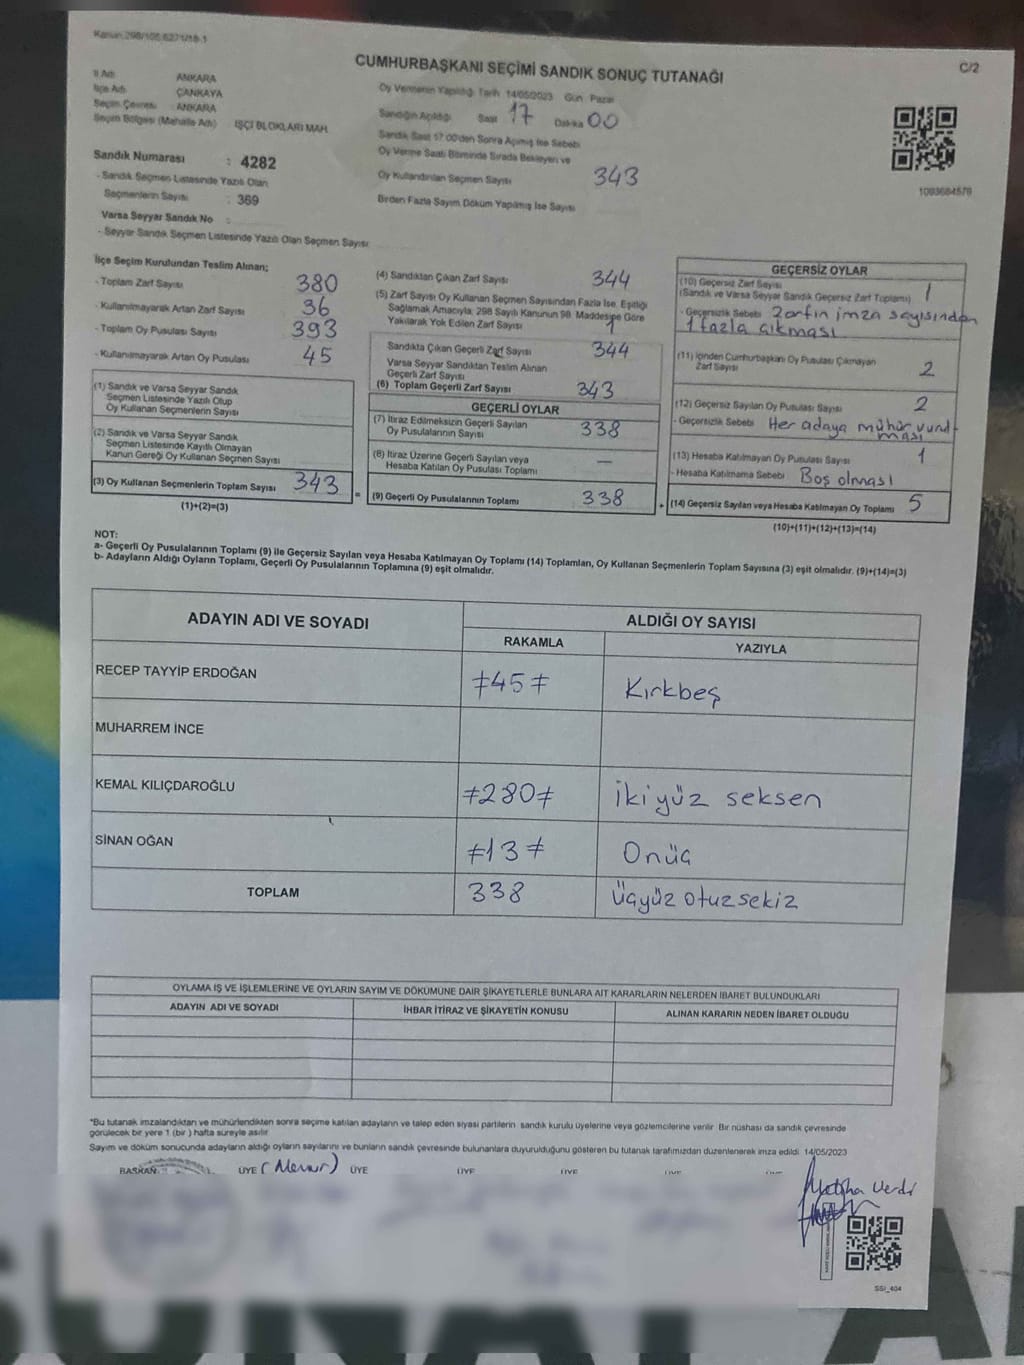 Kanun:298/105,6271/18-1
CUMHURBAŞKANI SEÇİMİ SANDIK SONUÇ TUTANAĞI
C/2
İl Adı ANKARA
İlçe Adı ÇANKAYA
Seçim Çevresi : ANKARA
Seçim Bölgesi (Mahalle Adı) İŞÇİ BLOKLARI MAH.
Sandık Numarası : 4282
- Sandık Seçmen Listesinde Yazılı Olan
Seçmenlerin Sayısı : 369
Varsa Seyyar Sandık No :
- Seyyar Sandık Seçmen Listesinde Yazılı Olan Seçmen Sayısı
Oy Vermenin Yapıldığı Tarih 14/05/2023 Gün Pazar
Sandığın Açıldığı Saat 17 Dakika 00
Sandık Saat 17:00'den Sonra Açılmış İse Sebebi
Oy Verme Saati Bitiminde Sırada Bekleyen ve
Oy Kullandırılan Seçmen Sayısı 343
Birden Fazla Sayım Döküm Yapılmış İse Sayısı
1093684576
İlçe Seçim Kurulundan Teslim Alınan;
- Toplam Zarf Sayısı 380
- Kullanılmayarak Artan Zarf Sayısı 36
- Toplam Oy Pusulası Sayısı 393
- Kullanılmayarak Artan Oy Pusulası 45
(1) Sandık ve Varsa Seyyar Sandık
Seçmen Listesinde Yazılı Olup
Oy Kullanan Seçmenlerin Sayısı
(2) Sandık ve Varsa Seyyar Sandık
Seçmen Listesinde Kayıtlı Olmayan
Kanun Gereği Oy Kullanan Seçmen Sayısı
(3) Oy Kullanan Seçmenlerin Toplam Sayısı 343
(1)+(2)=(3)
=
(4) Sandıktan Çıkan Zarf Sayısı 344
(5) Zarf Sayısı Oy Kullanan Seçmen Sayısından Fazla İse, Eşitliği
Sağlamak Amacıyla; 298 Sayılı Kanunun 98. Maddesine Göre
Yakılarak Yok Edilen Zarf Sayısı 1
Sandıkta Çıkan Geçerli Zarf Sayısı 344
Varsa Seyyar Sandıktan Teslim Alınan
Geçerli Zarf Sayısı
(6) Toplam Geçerli Zarf Sayısı 343
GEÇERLİ OYLAR
(7) İtiraz Edilmeksizin Geçerli Sayılan
Oy Pusulalarının Sayısı 338
(8) İtiraz Üzerine Geçerli Sayılan veya
Hesaba Katılan Oy Pusulası Toplamı —
(9) Geçerli Oy Pusulalarının Toplamı 338
+
GEÇERSİZ OYLAR
(10) Geçersiz Zarf Sayısı 1
(Sandık ve Varsa Seyyar Sandık Geçersiz Zarf Toplamı)
- Geçersizlik Sebebi Zarfın imza sayısından
1 fazla çıkması
(11) İçinden Cumhurbaşkanı Oy Pusulası Çıkmayan
Zarf Sayısı 2
(12) Geçersiz Sayılan Oy Pusulası Sayısı 2
- Geçersizlik Sebebi Her adaya mühür vurul-
ması
(13) Hesaba Katılmayan Oy Pusulası Sayısı 1
- Hesaba Katılmama Sebebi Boş olması
(14) Geçersiz Sayılan veya Hesaba Katılmayan Oy Toplamı 5
(10)+(11)+(12)+(13)=(14)
NOT:
a- Geçerli Oy Pusulalarının Toplamı (9) ile Geçersiz Sayılan veya Hesaba Katılmayan Oy Toplamı (14) Toplamları, Oy Kullanan Seçmenlerin Toplam Sayısına (3) eşit olmalıdır. (9)+(14)=(3)
b- Adayların Aldığı Oyların Toplamı, Geçerli Oy Pusulalarının Toplamına (9) eşit olmalıdır.
ADAYIN ADI VE SOYADI ALDIĞI OY SAYISI
RAKAMLA YAZIYLA
RECEP TAYYİP ERDOĞAN ≠45≠ Kırkbeş
MUHARREM İNCE
KEMAL KILIÇDAROĞLU ≠280≠ İkiyüz seksen
SİNAN OĞAN ≠13≠ Onüç
TOPLAM 338 Üçyüz otuz sekiz
OYLAMA İŞ VE İŞLEMLERİNE VE OYLARIN SAYIM VE DÖKÜMÜNE DAİR ŞİKAYETLERLE BUNLARA AİT KARARLARIN NELERDEN İBARET BULUNDUKLARI
ADAYIN ADI VE SOYADI İHBAR İTİRAZ VE ŞİKAYETİN KONUSU ALINAN KARARIN NEDEN İBARET OLDUĞU
*Bu tutanak imzalandıktan ve mühürlendikten sonra seçime katılan adayların ve talep eden siyasi partilerin sandık kurulu üyelerine veya gözlemcilerine verilir. Bir nüshası da sandık çevresinde
görülecek bir yere 1 (bir) hafta süreyle asılır.
Sayım ve döküm sonucunda adayların aldığı oyların sayılarını ve bunların sandık çevresinde bulunanlara duyurulduğunu gösteren bu tutanak tarafımızdan düzenlenerek imza edildi. 14/05/2023
BAŞKAN ÜYE (Memur) ÜYE ÜYE ÜYE ÜYE ÜYE
Verdi
SSI_404